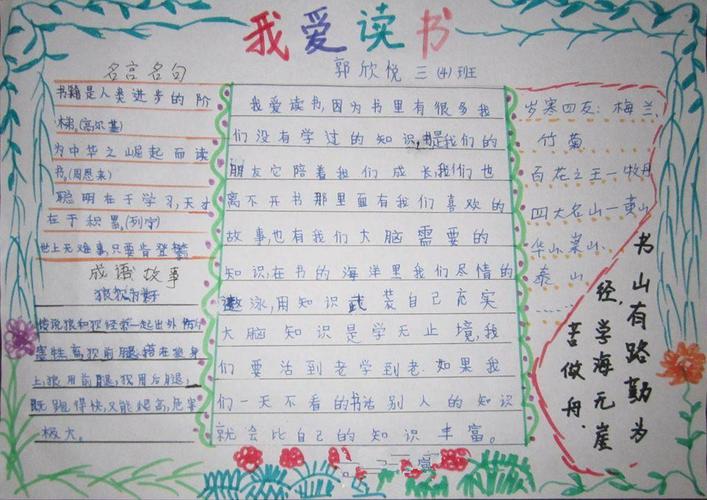 我爱读书
郭欣悦 三(4)班
名言名句
书籍是人类进步的阶
梯。(高尔基)
为中华之崛起而读
书。(周恩来)
聪明在于学习,天才
在于积累。(列宁)
世上无难事,只要肯登攀
成语故事
狼狈为奸
传说狼和狈经常一起出外伤
害牲畜,狈前腿搭在狼身
上,狼用前腿,狈用后腿,
既跑得快,又能爬高,危害
极大。
我爱读书,因为书里有很多我
们没有学过的知识,书是我们的
朋友它陪着我们成长,我们也
离不开书那里面有我们喜欢的
故事,也有我们大脑需要的
知识,在书的海洋里我们尽情的
遨泳,用知识武装自己充实
大脑知识是学无止境,我
们要活到老学到老.如果我
们一天不看的书话别人的知识
就会比自己的知识丰富。
岁寒四友:梅兰
竹菊
百花之王一牡丹
四大名山一
华山
泰山
书山有路勤为
经,学海无崖
苦做舟.